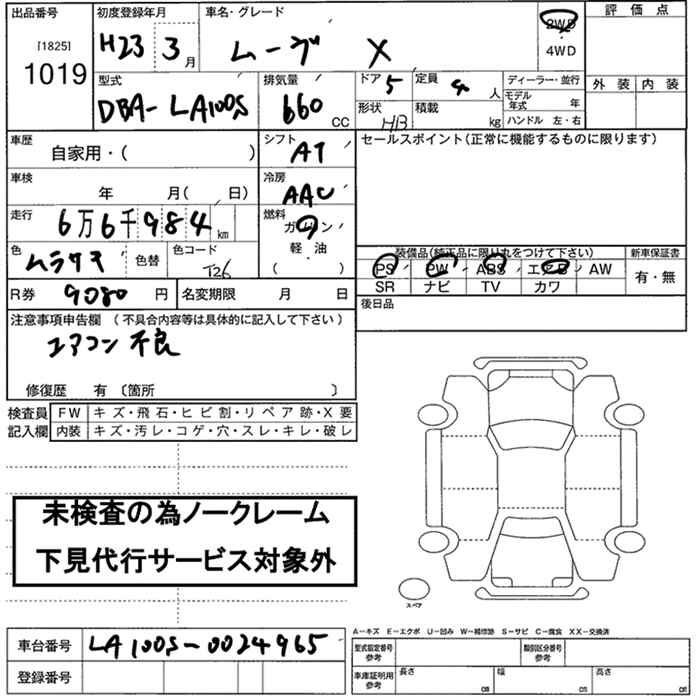 出品番号 初度登録年月 車名・グレード 評価点
[1825] H23 3月 ムーヴ X 2WD
1019 4WD
型式 排気量 ドア 5 定員 4 人 ディーラー・並行 外装 内装
DBA-LA100S 660 CC 形状 HB 積載 kg モデル年式 年
ハンドル 左・右
車歴 自家用・( ) シフト AT セールスポイント(正常に機能するものに限ります)
車検 年 月( 日) 冷房 AAC
走行 6万6千984km 燃料 ガソリン
軽・油
( )
色 ムラサキ 色替 色コード T26 装備品(純正品に限り丸をつけて下さい) 新車保証書
PS PW ABS エアB AW 有・無
R券 9080 円 名変期限 月 日 SR ナビ TV カワ
後日品
注意事項申告欄 (不具合内容等は具体的に記入して下さい)
エアコン不良
修復歴 有 〔箇所 〕
検査員 FW キズ・飛石・ヒビ割・リペア跡・X要
記入欄 内装 キズ・汚レ・コゲ・穴・スレ・キレ・破レ
未検査の為ノークレーム
下見代行サービス対象外
スペア
A-キズ E-エクボ U-凹み W-補修跡 S-サビ C-腐食 XX-交換済
車台番号 LA100S-0024965 型式指定番号 参考 類別区分番号 参考
登録番号 車庫証明用 参考 長さ cm 幅 cm 高さ cm